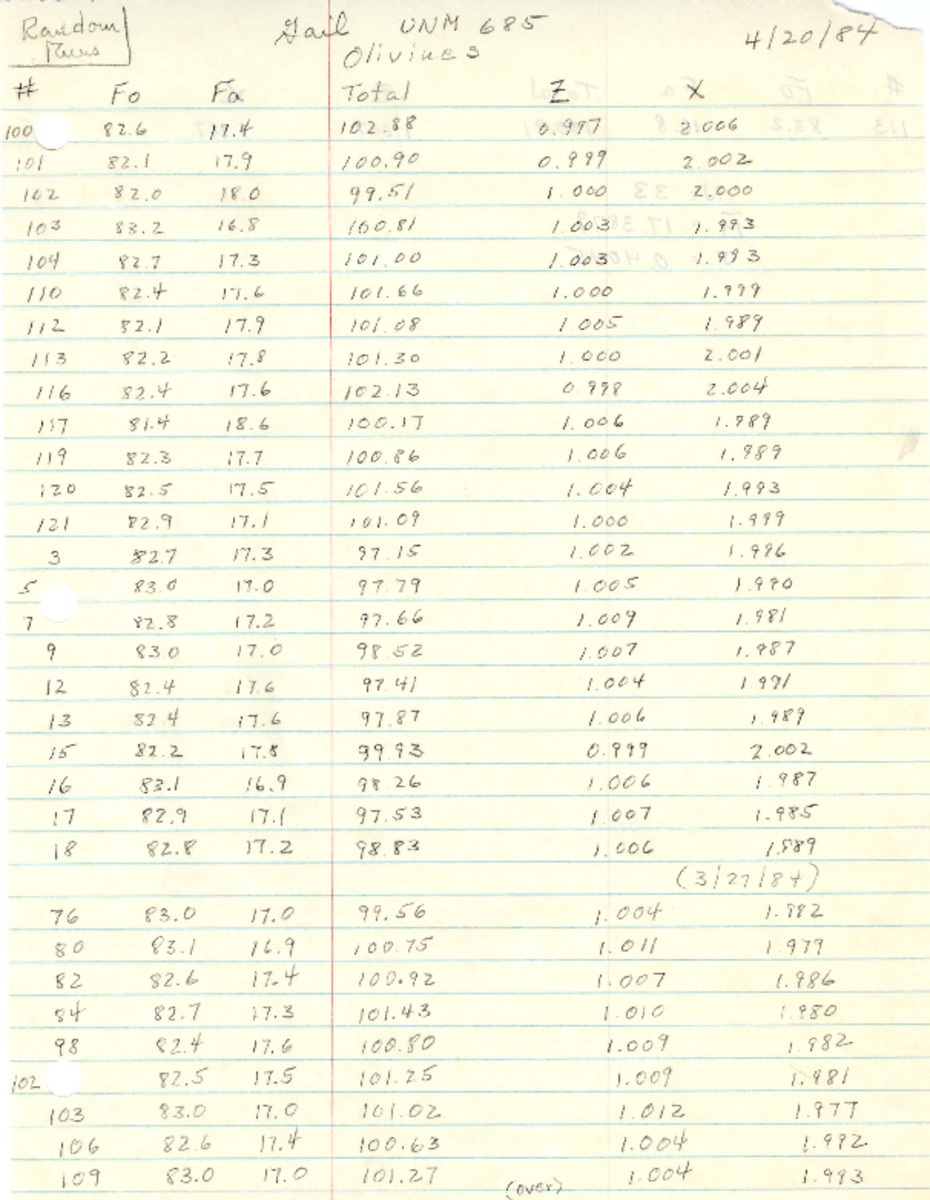 Random Runs
Gail UNM 685
Olivines
4/20/84
# Fo Fa Total Z X
100 82.6 17.4 102.88 0.997 2.006
101 82.1 17.9 100.90 0.999 2.002
102 82.0 18.0 99.51 1.000 2.000
103 83.2 16.8 100.81 1.003 1.993
104 82.7 17.3 101.00 1.003 1.993
110 82.4 17.6 101.66 1.000 1.999
112 82.1 17.9 101.08 1.005 1.989
113 82.2 17.8 101.30 1.000 2.001
116 82.4 17.6 102.13 0.998 2.004
117 81.4 18.6 100.17 1.006 1.989
119 82.3 17.7 100.86 1.006 1.989
120 82.5 17.5 101.56 1.004 1.993
121 82.9 17.1 101.09 1.000 1.999
3 82.7 17.3 97.15 1.002 1.996
5 83.0 17.0 97.79 1.005 1.990
7 82.8 17.2 97.66 1.009 1.981
9 83.0 17.0 98.52 1.007 1.987
12 82.4 17.6 97.41 1.004 1.991
13 82.4 17.6 97.87 1.006 1.989
15 82.2 17.8 99.93 0.999 2.002
16 83.1 16.9 98.26 1.006 1.987
17 82.9 17.1 97.53 1.007 1.985
18 82.8 17.2 98.83 1.006 1.989
(3/27/84)
76 83.0 17.0 99.56 1.004 1.992
80 83.1 16.9 100.75 1.011 1.979
82 82.6 17.4 100.92 1.007 1.986
84 82.7 17.3 101.43 1.010 1.980
98 82.4 17.6 100.80 1.009 1.982
102 82.5 17.5 101.25 1.009 1.981
103 83.0 17.0 101.02 1.012 1.977
106 82.6 17.4 100.63 1.004 1.992
109 83.0 17.0 101.27 1.004 1.993
(over)